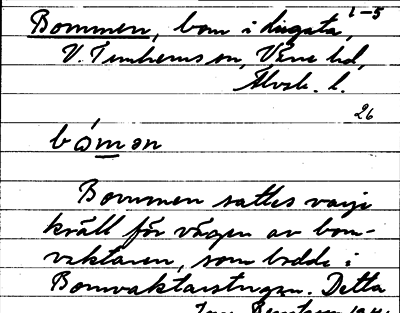 1-5
Bommen, bom i lugata,
V. Tunhems sn, Väne hd,
Älvsb. l.
26
bómən
Bommen sattes varje
kväll för vägen av bom-
vaktaren, som bodde i
Bomvaktarstugan. Detta